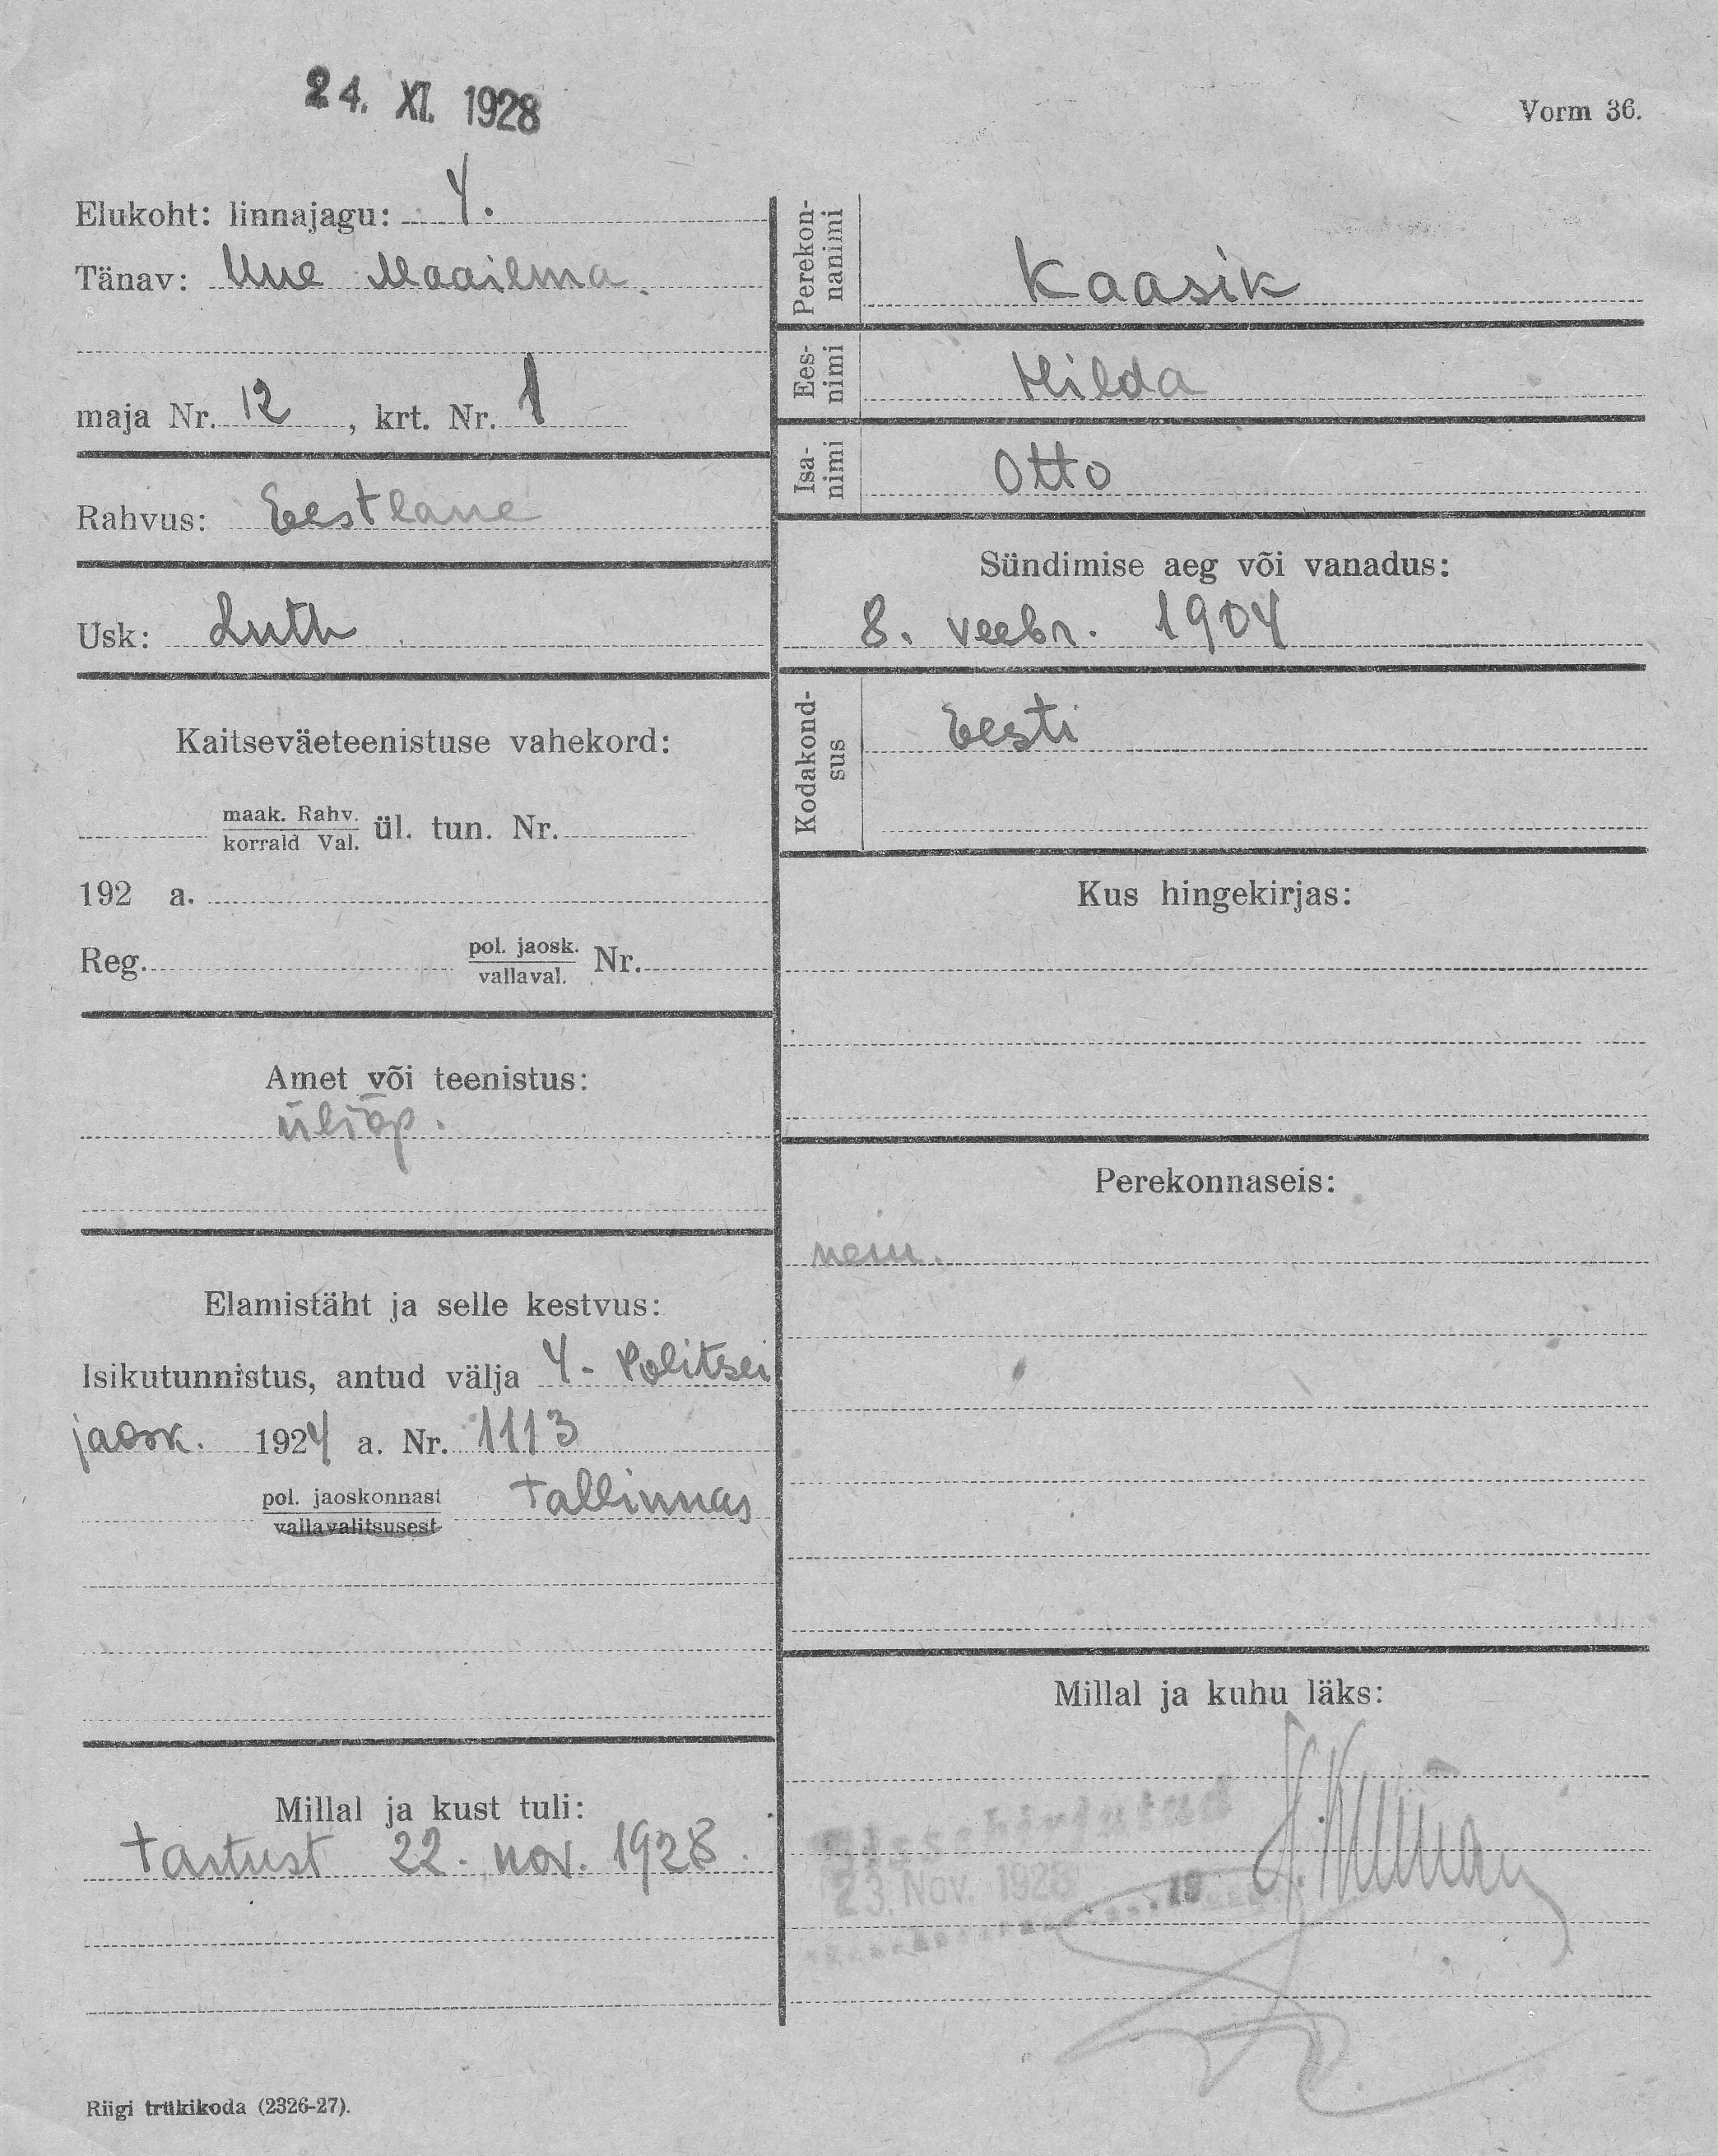 24. XI. 1928
Vorm 36.
Elukoht: linnajagu: 4.
Tänav: Uue Maailma.
maja Nr. 12, krt. Nr. 1
Rahvus: Eestlane
Usk: Luth
Kaitseväeteenistuse vahekord:
maak. Rahv.
korrald Val. ül. tun. Nr.
192 a.
Reg. pol. jaosk.
vallaval. Nr.
Amet või teenistus:
üliõp.
Elamistäht ja selle kestvus:
Isikutunnistus, antud välja 4. Politsei
jaosk. 1924 a. Nr. 1113
pol. jaoskonnast
vallavalitsusest Tallinnas
Millal ja kust tuli:
Tartust 22. nov. 1928.
Riigi trükikoda (2326-27).
Perekon-
nanimi
Kaasik
Ees-
nimi
Hilda
Isa-
nimi
Otto
Sündimise aeg või vanadus:
8. veebr. 1904
Kodakond-
sus
Eesti
Kus hingekirjas:
Perekonnaseis:
Millal ja kuhu läks:
Sissekirjutud
23. Nov. 1928 19